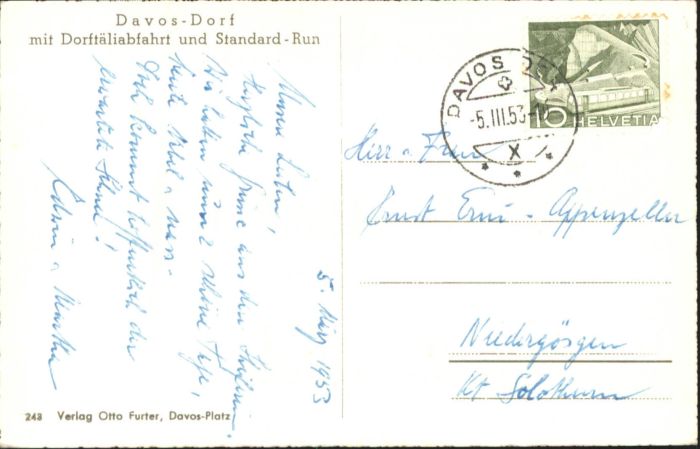 Davos-Dorf
mit Dorftäliabfahrt und Standard-Run
5. März 1953
Meine Lieben,
herzliche Grüsse aus den Skiferien.
Wir hatten schöne Tage,
heute Nebel & nass.
Doch kommt hoffentlich der
erwartete Schnee!
Edwin & Martha
243 Verlag Otto Furter, Davos-Platz
DAVOS DORF
-5.III.53
X
10
HELVETIA
Herr & Frau
Ernst Erni-Appenzeller
Niedergösgen
Kt Solothurn